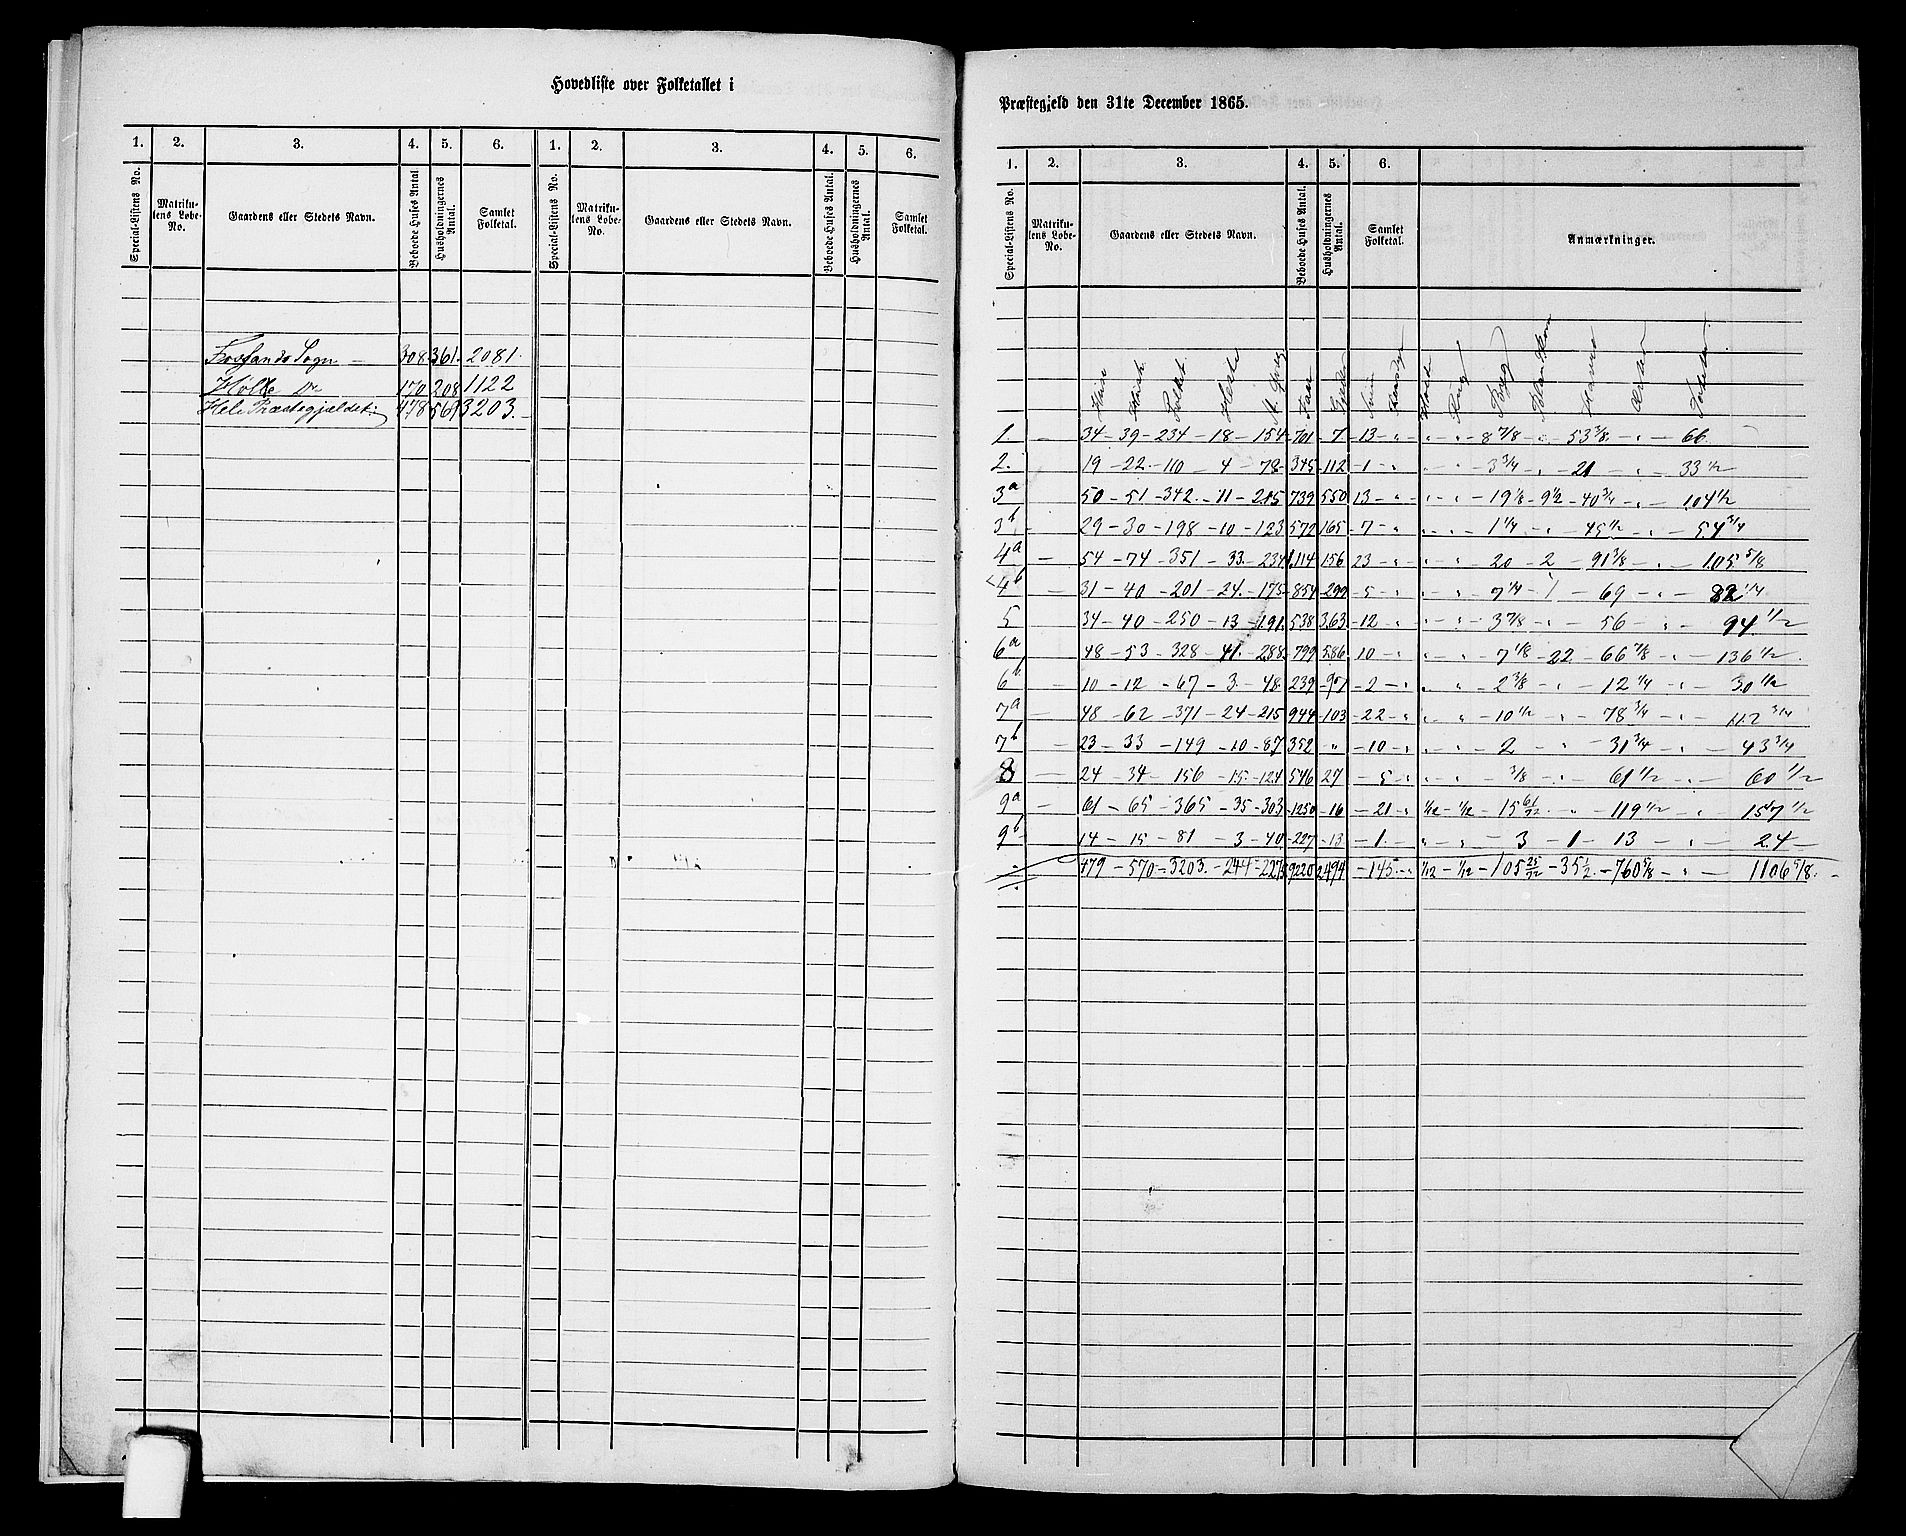 Hovedliste over Folketallet i
1. 2. 3. 4. 5. 6. 1. 2. 3. 4. 5. 6.
Special-Listens No. Matrikulens Løbe-No. Gaardens eller Stedets Navn. Beboede Huses Antal Husholdningernes Antal. Samlet Folketal. Special-Listens No. Matrikulens Løbe-No. Gaardens eller Stedets Navn. Beboede Huses Antal. Husholdningernes Antal. Samlet Folketal.
Fossands Sogn — 308. 361. 2081.
Hölle Do 170 208 1122
Hele Præstegjeldet: 478 569 3203.
Præstegjeld den 31te December 1865.
1. 2. 3. 4. 5. 6.
Special-Listens No. Matrikulens Løbe-No. Gaardens eller Stedets Navn. Beboede Huses Antal. Husholdningernes Antal. Samlet Folketal. Anmærkninger.
Huse Hush Folket Heste St. Qvæg Faar Gjeder Sviin Rensdyr Hvede Rug Byg Blandkorn Havre Erter Poteter
1. — 34 - 39 - 234 - 18 - 154 - 701 - 7 - 13 - " " - " - 8 7/8 - " - 53 3/8 - " - 66
2. 19 - 22 - 110 - 4 - 78 - 345 - 112 - 1 - " " - " - 3 3/4 - " - 21 " - 33 1/2
3a 50 - 51 - 342 - 11 - 215 739 550 13 - " " - " - 19 1/8 - 9 1/2 - 40 3/4 - " - 104 1/2
3b 29 - 30 - 198 - 10 - 123 572 165 - 7 - " " - " - 1 1/4 - " - 45 1/2 - " - 54 3/4
4a — 54 - 74 - 351 - 33 - 234 1,114 156 23 - " " - " - 20 - 2 - 91 3/8 - " - 105 5/8
4b 31 - 40 - 201 - 24 - 175 - 854 299 - 5 - " " - " - 7 1/4 - 1 - 69 - " - 82 1/4
5 34 - 40 - 250 - 13 - 191. 538 363 - 12 - " " - " - 3 7/8 - " - 56 - " - 94 1/2
6a — 48 - 53 - 328 - 41 - 288 799 586 - 10 - " " - " - 7 1/8 - 22 - 66 7/8 - " - 136 1/2
6b 10 - 12 - 67 - 3 - 48 239 - 2 - " " - " - 2 3/8 - " - 12 1/4 - " - 30 1/2
7a — 48 - 62 - 371 - 24 - 215 944 - 103 - 22 - " " - " - 10 1/2 - " - 78 3/4 - " - 112 3/4
7b — 23 - 33 - 149 - 10 - 87 352 " - 10 - " " - " - 2 - " - 31 3/4 - " - 43 3/4
8 — 24 - 34 - 156 - 15 - 124 546 27 - 5 - " " - " - 3/8 - " - 61 1/2 - " - 60 1/2
9a — 61 - 65 - 365 - 35 - 303 - 1250 - 16 - 21 - " 1/12 - 1/12 - 15 61/72 - " - 119 1/2 - " - 157 1/2
9b 14 - 15 - 81 - 3 - 40 - 227 - 13 - 1. " - " - 3 - 1 - 13 - " - 24 —
479 - 570 - 3203. - 244 - 2275 9220 2494 - 145 - " 1/12 - 1/12 - 105 25/72 - 35 1/2 - 760 5/8 - " - 1106 5/8.